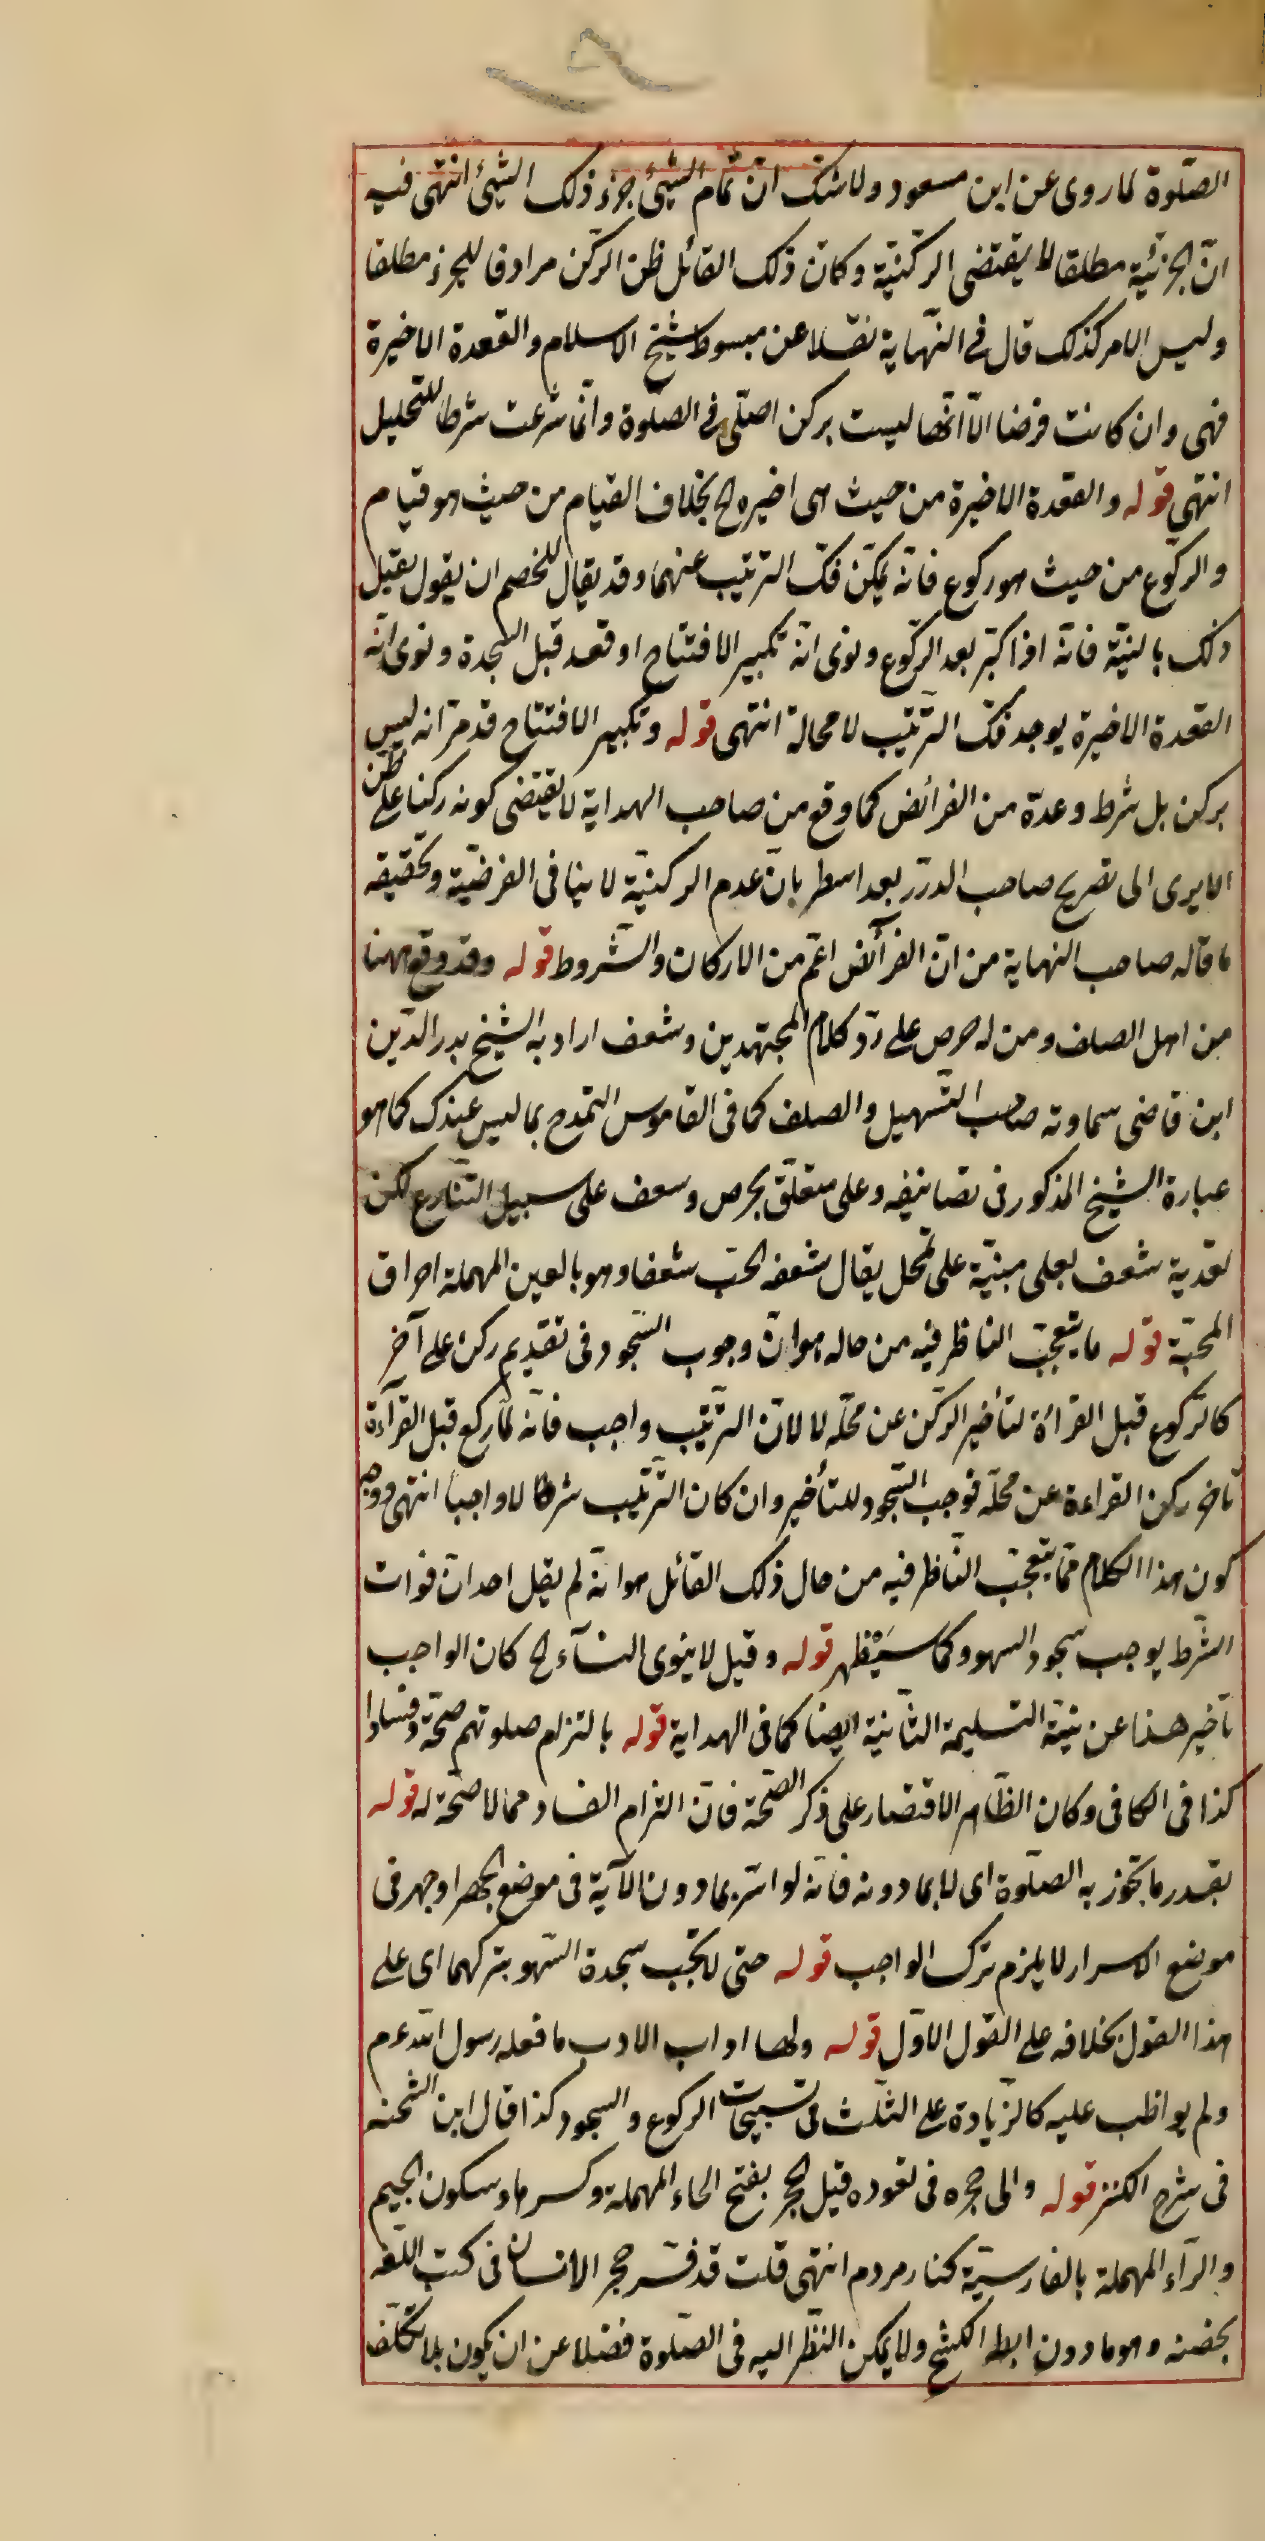 الصّلوة لما روى عن ابن مسعود ولا شك انّ تمام الشيئ جزؤ ذلك الشيئ انتهى فيه
انّ الجزئيّة مطلقا لا يقتضى الركنيّة وكانّ ذلك القائل ظن الركن مرادفا للجزؤ مطلقا
وليس الامر كذلك قال فى النّهاية نقلا عن مبسوط شيخ الاسلام والقعدة الاخيرة
فهى وان كانت فرضا الّا انّها ليست بركن اصلّى فى الصلوة وانّما شرعت شرطا للتحليل
انتهى قوله والقعدة الاخيرة من حيث هى اخيره لح بخلاف القيام من حيث هو قيام
والركوع من حيث هو ركوع فانّه يمكن فكّ الترتيب عنهما وقد يقال للخصم ان يقول يقبل
ذلك بالنيّة فانّه اذا كبّر بعد الركوع ونوى انّه تكبير الافتتاح او قعد قبل السجدة ونوى انّه
القعدة الاخيرة يوجد فكّ الترتيب لا محالة انتهى قوله وتكبير الافتتاح قد مرّ انه ليس
بركن بل شرط وعدّه من الفرائض كما وقع من صاحب الهداية لا يقتضى كونه ركنا على ظن
الا يرى الى تصريح صاحب الدرر بعد اسطر بانّ عدم الركنيّة لا ينافى الفرضيّة وتحقيقه
ما قاله صاحب النهاية من انّ الفرآئض اعّم من الاركان والشروط قوله وقد وقع ههنا
من اهل الصلف ومن له حرص على ردّ كلام المجتهدين وشعف اراد به الشيخ بدر الدّين
ابن قاضى سماوته صاحب التسهيل والصلف كما فى القاموس التمدح بما ليس عندك كما هو
عبارة الشيخ المذكور فى تصانيفه وعلى متعلّق بحرص وسعف على سبيل التنازع لكن
تعدية شعف بعلى مبنيّة على تمحل يقال شعفه الحبّ شعفا وهو بالعين المهملة احراق
المحبّة قوله ما يتعجّب الناظر فيه من حاله هو انّ وجوب السّجود فى تقديم ركن على آخر
كالركوع قبل القرائة لتأخير الركن عن محّله لا لانّ الترتيب واجب فانّه لمّا ركع قبل القرآءة
تاخر ركن القراءة عن محلّه فوجب السّجود للتأخير وان كان الترّتيب شرطا لا واجبا انتهى ووجه
كون هذا الكلام ممّا يتعجّب النّاظر فيه من حال ذلك القائل هو انّه لم يقل احد انّ فوات
الشرط يوجب سجود السهو وكما سيظهر قوله وقيل لا ينوى النسآء لح كان الواجب
تاخير هذا عن نيّة التسليمة الثانية ايضا كما فى الهداية قوله بالتزام صلوتهم صحّة وفسادا
كذا فى الكافى وكان الظّاهر الاقتصار على ذكر الصّحة فانّ التزام الفساد مما لا صحّة له قوله
بقدر ما يجوز به الصّلوة اى لا بما دونه فانّه لو اسّر بما دون الآية فى موضع الجهر او جهر فى
موضع الاسرار لا يلزم ترك الواجب قوله حتى لا يجب سجدة السّهو بتركهما اى على
هذا القول بخلافه على القول الاوّل قوله ولها اداب الادب ما فعله رسول الله عم
ولم يواظب عليه كالزيادة على الثلث فى تسبيحات الركوع والسجود كذا قال ابن الشحنه
فى شرح الكنز قوله والى حجره فى قعوده قيل الحجر بفتح الحاء المهملة وكسرها وسكون الجيم
والرآء المهملة بالفارسيّة كنار مردم انتهى قلت قد فسّر حجر الانسان فى كتب اللغه
بحضنه وهو ما دون ابط الكشح ولا يمكن النظّر اليه فى الصّلوة فضلا عن ان يكون بلا تكلّف